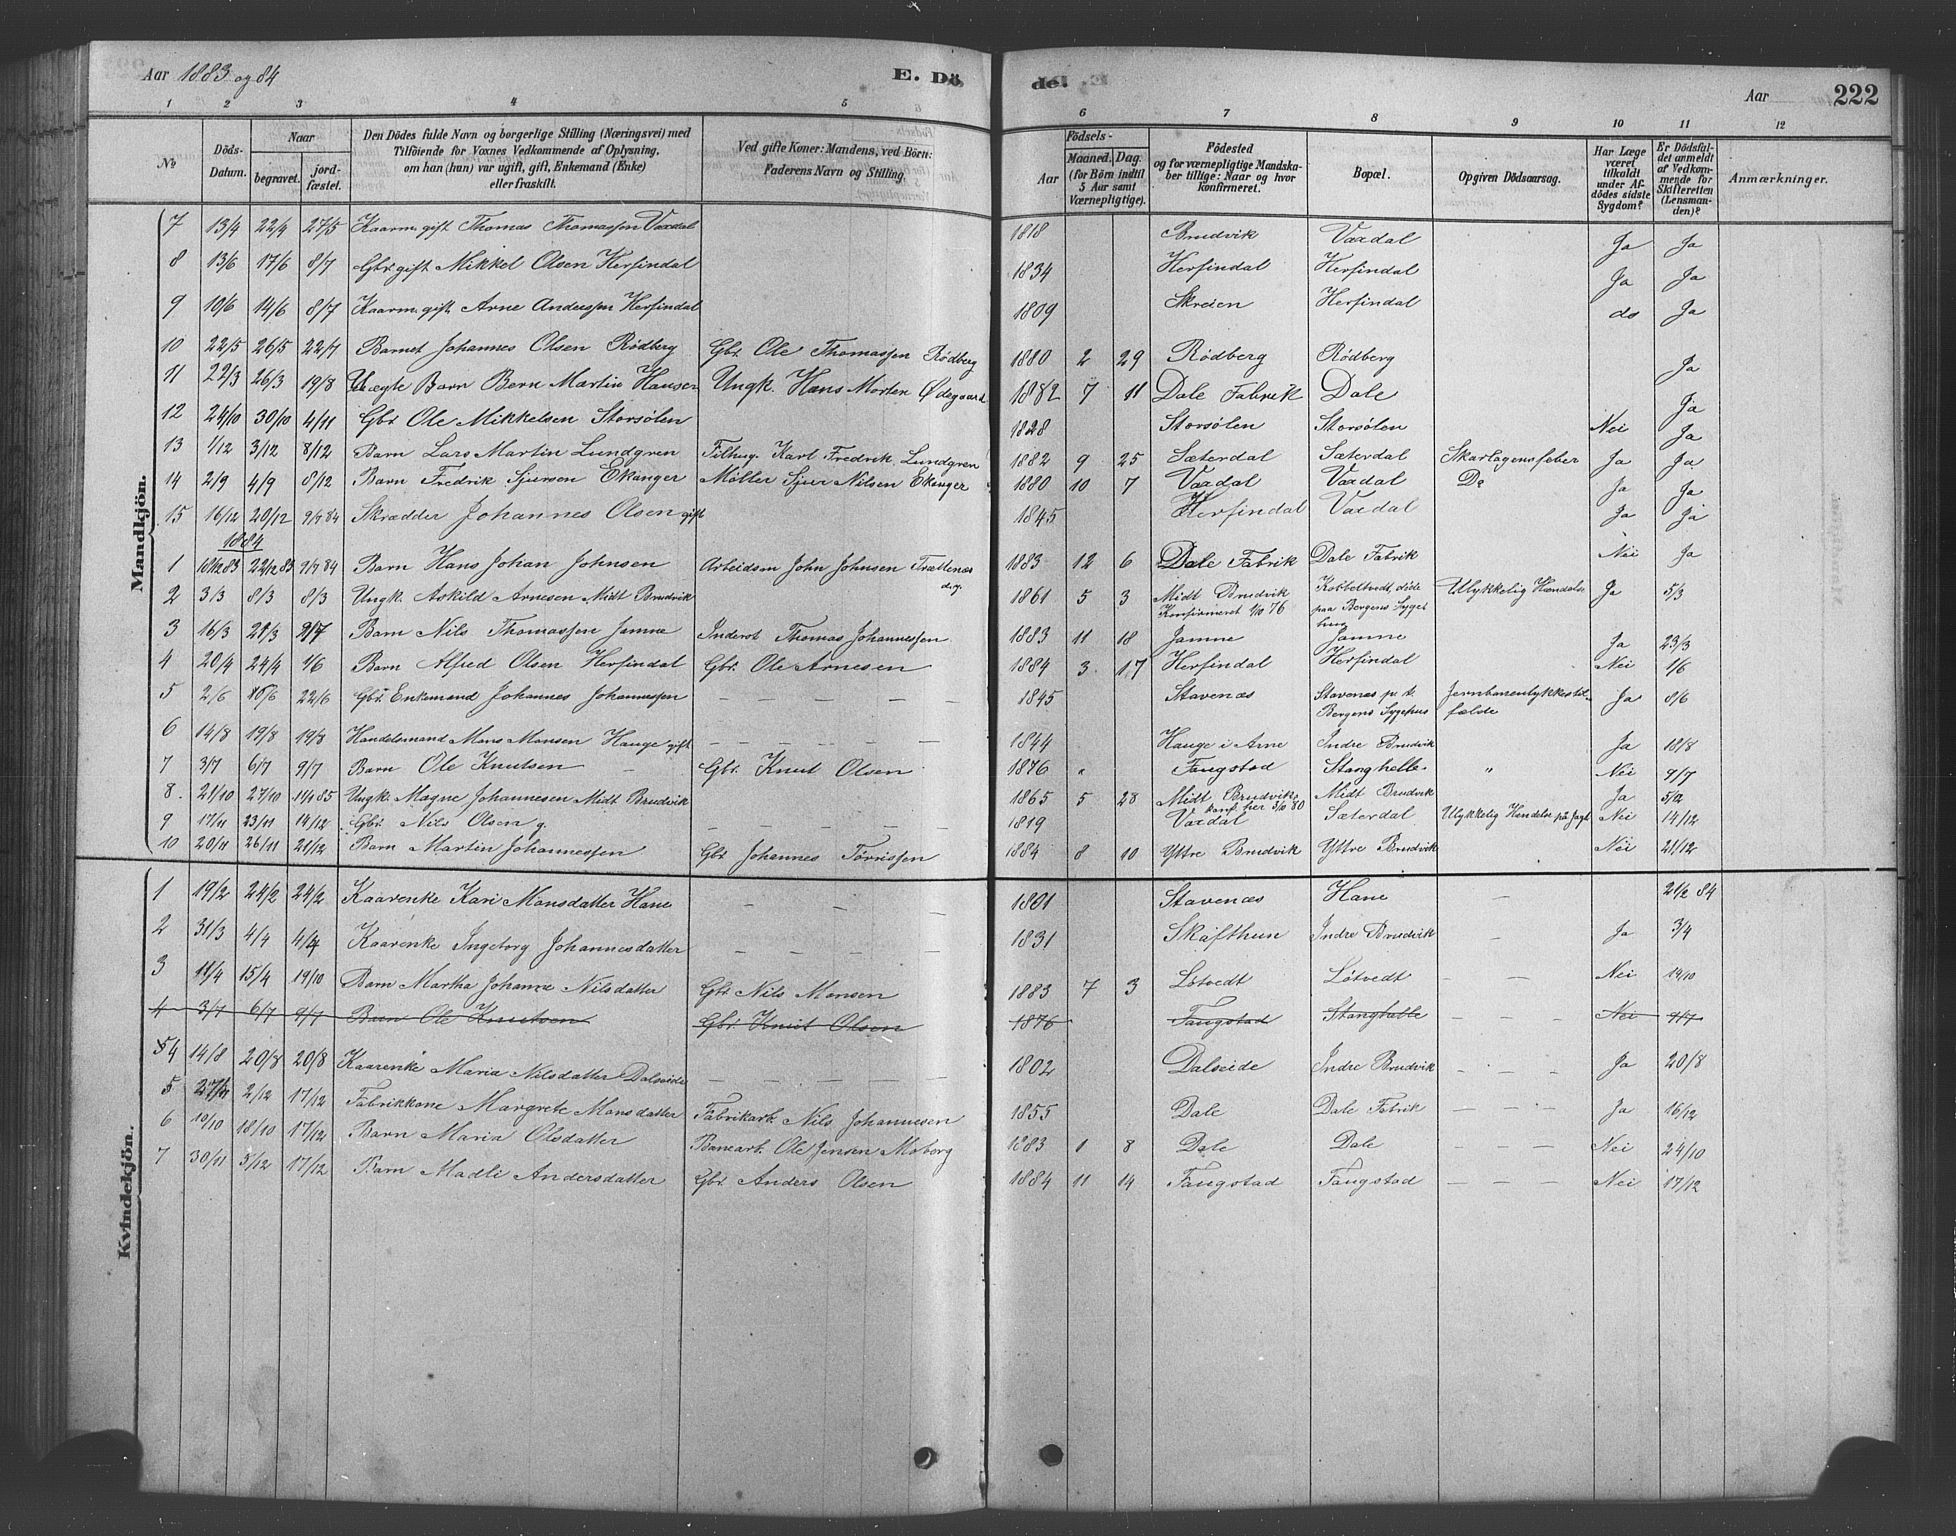 Aar 1883 og 84 E. Dö de. Aar 222
1 2 3 4 5 6 7 8 9 10 11 12
No
Döds-Datum.
Naar
begravet.
jord-fæstet.
Den Dödes fulde Navn og borgerlige Stilling (Næringsvei) med
Tilföiende for Voxnes Vedkommende af Oplysning,
om han (hun) var ugift, gift, Enkemand (Enke)
eller fraskilt.
Ved gifte Koner: Mandens, ved Börn:
Faderens Navn og Stilling.
Födsels-
Aar
Maaned. Dag.
(for Börn indtil
5 Aar samt
Værnepligtige).
Födested
og for værnepligtige Mandska-
ber tillige: Naar og hvor
konfirmeret.
Bopæl.
Opgiven Dödsaarsag.
Har Læge
været
tilkaldt
under Af-
dödes sidste
Sygdom?
Er Dödsfal-
det anmeldt
af Vedkom-
mende for
Skifteretten
(Lensman-
den)?
Anmærkninger.
Mandkjön.
7 13/4 22/4 27/5 Kaarm. gift Thomas Thomassen Vaxdal 1818 Brudvik Vaxdal Ja Ja
8 13/6 17/6 8/7 Gbr. gift Mikkel Olsen Herfindal 1834 Herfindal Herfindal Ja Ja
9 10/6 14/6 8/7 Kaarm. gift Arne Andersen Herfindal 1809 Skreien Herfindal do Ja
10 22/5 26/5 22/7 Barnet Johannes Olsen Rødberg Gbr. Ole Thomassen Rødberg 1880 2 29 Rødberg Rødberg Ja
11 22/3 26/3 19/8 Uægte Barn Bern Martin Hansen Ungk. Hans Morten Ødegaard 1882 7 11 Dale Fabrik Dale Ja
12 24/10 30/10 4/11 Gbr. Ole Mikkelsen Storsølen 1828 Storsølen Storsølen Nei Ja
13 1/12 3/12 8/12 Barn Lars Martin Lundgren Filhug. Karl Fredrik Lundgren 1882 9 25 Sæterdal Sæterdal Skarlagensfeber Ja Ja
14 2/9 4/9 8/12 Barn Fredrik Sjursen Ekanger Møller Sjur Nilsen Ekanger 1880 10 7 Vaxdal Vaxdal Do Ja Ja
15 16/12 20/12 9/1 84 Skrædder Johannes Olsen gift 1845 Herfindal Vaxdal Ja Ja
1884
1 18/12 83 22/12 83 9/1 84 Barn Hans Johan Johnsen Arbeidsm John Johnsen Trættenes 1883 12 6 Dale Fabrik Dale Fabrik Nei Ja
2 3/3 8/3 8/3 Ungk. Askild Arnesen Midt Brudvik 1861 5 3 Midt Brudvik Konfirmeret 1/10 76 Kobbeltvedt, døde paa Bergens Sygehus Ulykkelig Hændelse Ja 5/3
3 16/3 21/3 9/7 Barn Nils Thomassen Jamne Inderst Thomas Johannessen 1883 11 18 Jamne Jamne Ja 23/3
4 20/4 24/4 1/6 Barn Alfred Olsen Herfindal Gbr. Ole Arnesen 1884 3 17 Herfindal Herfindal Nei 1/6
5 2/6 6/6 22/6 Gbr. Enkemand Johannes Johannessen — — — — 1845 Stavenæs Stavenæs p. t. Bergens Sygehus Jernbaneulykkestilfælde Ja 8/6
6 14/8 19/8 19/8 Handelsmand Mons Monsen Hauge gift — — — — 1844 Hauge i Arne Indre Brudvik Ja 18/8
7 3/7 6/7 9/7 Barn Ole Knutsen — Gbr. Knut Olsen 1876 " Faugstad Stanghelle " Nei 9/7
8. 21/10 27/10 11/1 85 Ungk. Magne Johannesen Midt Brudvik 1865 5 28 Midt Brudvik, konf. her 3/10 80 Midt Brudvik Ja 5/12
9 17/11 23/11 14/12 Gbr. Nils Olsen g. — — — — 1819 Vaxdal Sæterdal Ulykkelig Hendelse på Jagt Nei 14/12
10 20/11 26/11 21/12 Barn Martin Johannessen Gbr Johannes Tørrissen 1884 8 10 Yttre Brudvik Yttre Brudvik Nei 21/12
Kvindekjön.
1 19/2 24/2 24/2 Kaarenke Kari Monsdatter Hane — — — 1801 Stavenæs Hane — 21/2 84
2 31/3 4/4 4/4 Kaarenke Ingeborg Johannesdatter — — — 1831 Skafthun Indre Brudvik — Ja 3/4
3 11/4 15/4 19/10 Barn Martha Johanne Nilsdatter Gbr Nils Monsen 1883 7 3 Løtvedt Løtvedt — — Nei 14/10
4 3/7 6/7 9/7 Barn Ole Knutsen Gbr. Knut Olsen 1876 Faugstad Stanghelle Nei 9/7
4 14/8 20/8 20/8 Kaarenke Maria Nilsdatter Dalseide — — — — 1802 Dalseide Indre Brudvik — — — Ja 20/8
5 27/11 2/12 17/12 Fabrikkone Margrete Monsdatter Fabrikarb. Nils Johannesen 1855 Dale Dale Fabrik — — — Ja 16/12
6 10/10 18/10 17/12 Barn Maria Olsdatter Banearb. Ole Jensen Moberg 1883 1 8 Dale Dale — — — Nei 24/10
7 30/11 3/12 17/12 Barn Madli Andersdatter Gbr. Anders Olsen 1884 11 14 Faugstad Faugstad — — — Nei 17/12